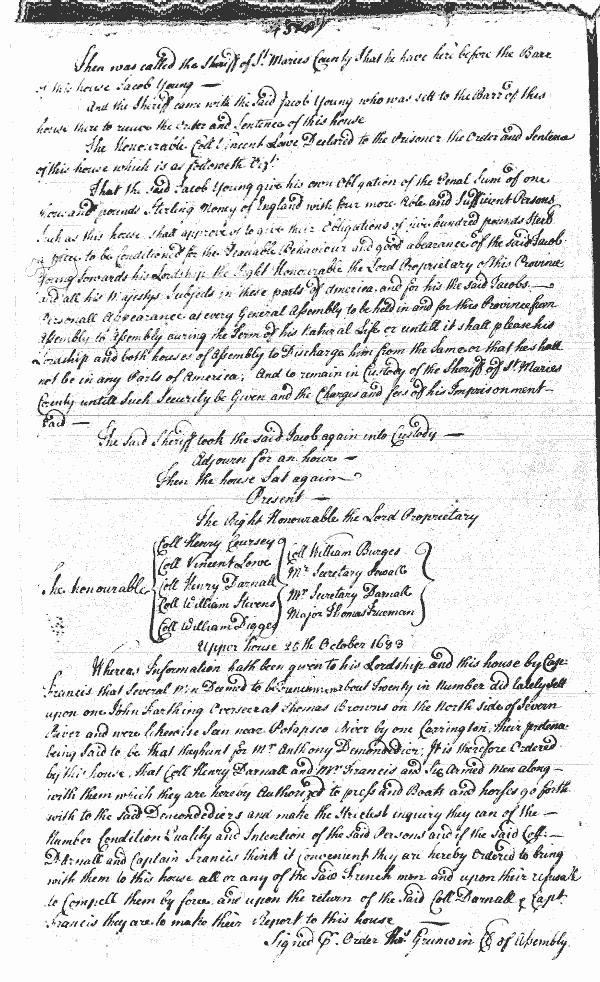 Then was called the Sheriff of St. Maries County That he have here before the Barr
of this house Jacob Young —
And the Sheriff came with the Said Jacob Young who was sett to the Barr of this
house there to receive the Order and Sentence of this house
The Honourable Coll Vincent Lowe Declared to the Prisoner the Order and Sentence
of this house which is as followeth Vizt.
That the Said Jacob Young give his own Obligation of the Penal Sum of one
thousand pounds Sterling Money of England with four more Able and Sufficient Persons
Such as this house shall approve of to give their Obligations of five hundred pounds Sterl
a piece to be Conditioned for the Peaceable Behaviour and good abearance of the said Jacob
Young towards his Lordship the Right Honourable the Lord Proprietary of this Province
and all his Majestys Subjects in these parts of America, and for his the said Jacobs —
Personall Appearance at every General Assembly to be held in and for this Province from
Assembly to Assembly during the Term of his Natural Life or untill it shall please his
Lordship and both houses of Assembly to Discharge him from the Same or that he shall
not be in any Parts of America; And to remain in Custody of the Sheriff of St Maries
County untill Such Security be Given and the Charges and fees of his Imprisonment —
Paid —
The Said Sheriff took the said Jacob again into Custody —
Adjourn for an hour —
Then the house Sat again
Present —
The Right Honourable the Lord Proprietary
The honourable
Coll Henry Coursey
Coll Vincent Lowe
Coll Henry Darnall
Coll William Stevens
Coll William Digges
Coll William Burges
Mr Secretary Sewall
Mr Secretary Darnall
Major Thomas Trueman
Upper house 26th October 1683
Whereas Information hath been given to his Lordship and this house by Capt
Francis that Several Men Deemed to be Frenchmen about Twenty in Number did lately
upon one John Farthing Overseer at Thomas Browns on the North side of Severn
River and were likewise Seen near Potapsco River by one Carrington, their pretence
being Said to be that they hunt for Mr Anthony Demondedier; It is therefore Ordered
by this house that Coll Henry Darnall and Mr Francis and Six Armed Men along —
with them which they are hereby Authorized to press and Boats and horses go forth
with to the Said Demondediers and make the Strictest inquiry they can of the —
Number Condition Quality and Intention of the Said Persons and if the Said Coll —
Darnall and Captain Francis think it convenient they are hereby Ordered to bring
with them to this house all or any of the Said French men and upon their refusall
to Compell them by force, and upon the return of the Said Coll Darnall & Capt
Francis they are to make their Report to this house
Signed P. Order Thos Grunwin Cl of Assembly